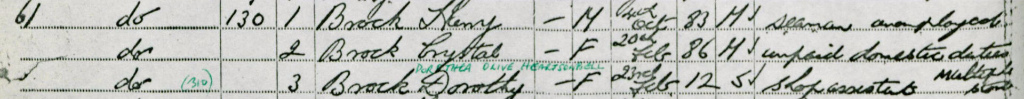 61 do 130 1 Brock Henry - M Oct 83 M seaman unemployed
do 2 Brock Crystal - F 20th Feb 86 M unpaid domestic duties
DOROTHEA OLIVE
do 3 Brock Dorothy - F 23rd Feb 12 S Shop assistant Multiple Store